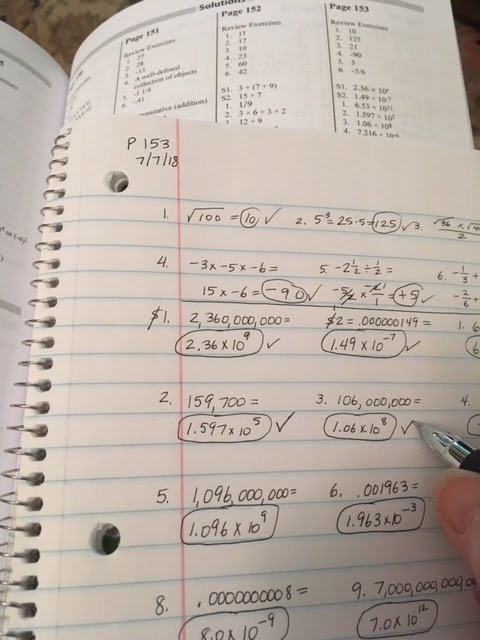 Solutions
Page 151
Review Exercises
1. 27
2. 28
3. -13
4. A well-defined
collection of objects
5. -1 1/4
6. -.41
mutative (addition)
Page 152
Review Exercises
1. 11
2. 17
3. 10
4. 23
5. 60
6. 42
S1. 3 + (7 + 9)
S2. 15 × 7
1. 1/9
2. 3 × 6 + 3 × 2
3. 12 + 9
Page 153
Review Exercises
1. 10
2. 125
3. 21
4. -90
5. 5
6. -5/6
S1. 2.36 × 10⁹
S2. 1.49 × 10⁻⁷
1. 6.53 × 10¹¹
2. 1.597 × 10⁵
3. 1.06 × 10⁸
4. 7.216 × 10⁻⁶
P 153
7/7/18
1. √100 = 10 ✓ 2. 5³ = 25·5 = 125 ✓ 3. √36 × √4
2
4. -3 × -5 × -6 = 5. -2 1/2 ÷ 1/2 = 6. -1/3 +
15 × -6 = -90 ✓ -5/2 × -2/1 = +5 ✓ -2/6 +
$1. 2,360,000,000 = $2 = .000000149 = 1. 6
2.36 × 10⁹ ✓ 1.49 × 10⁻⁷ ✓ 6
2. 159,700 = 3. 106,000,000 = 4.
1.597 × 10⁵ ✓ 1.06 × 10⁸ ✓
5. 1,096,000,000 = 6. .001963 =
1.096 × 10⁹ 1.963 × 10⁻³
8. .0000000008 = 9. 7,000,000,000,0
8.0 × 10⁻⁹ 7.0 × 10¹²